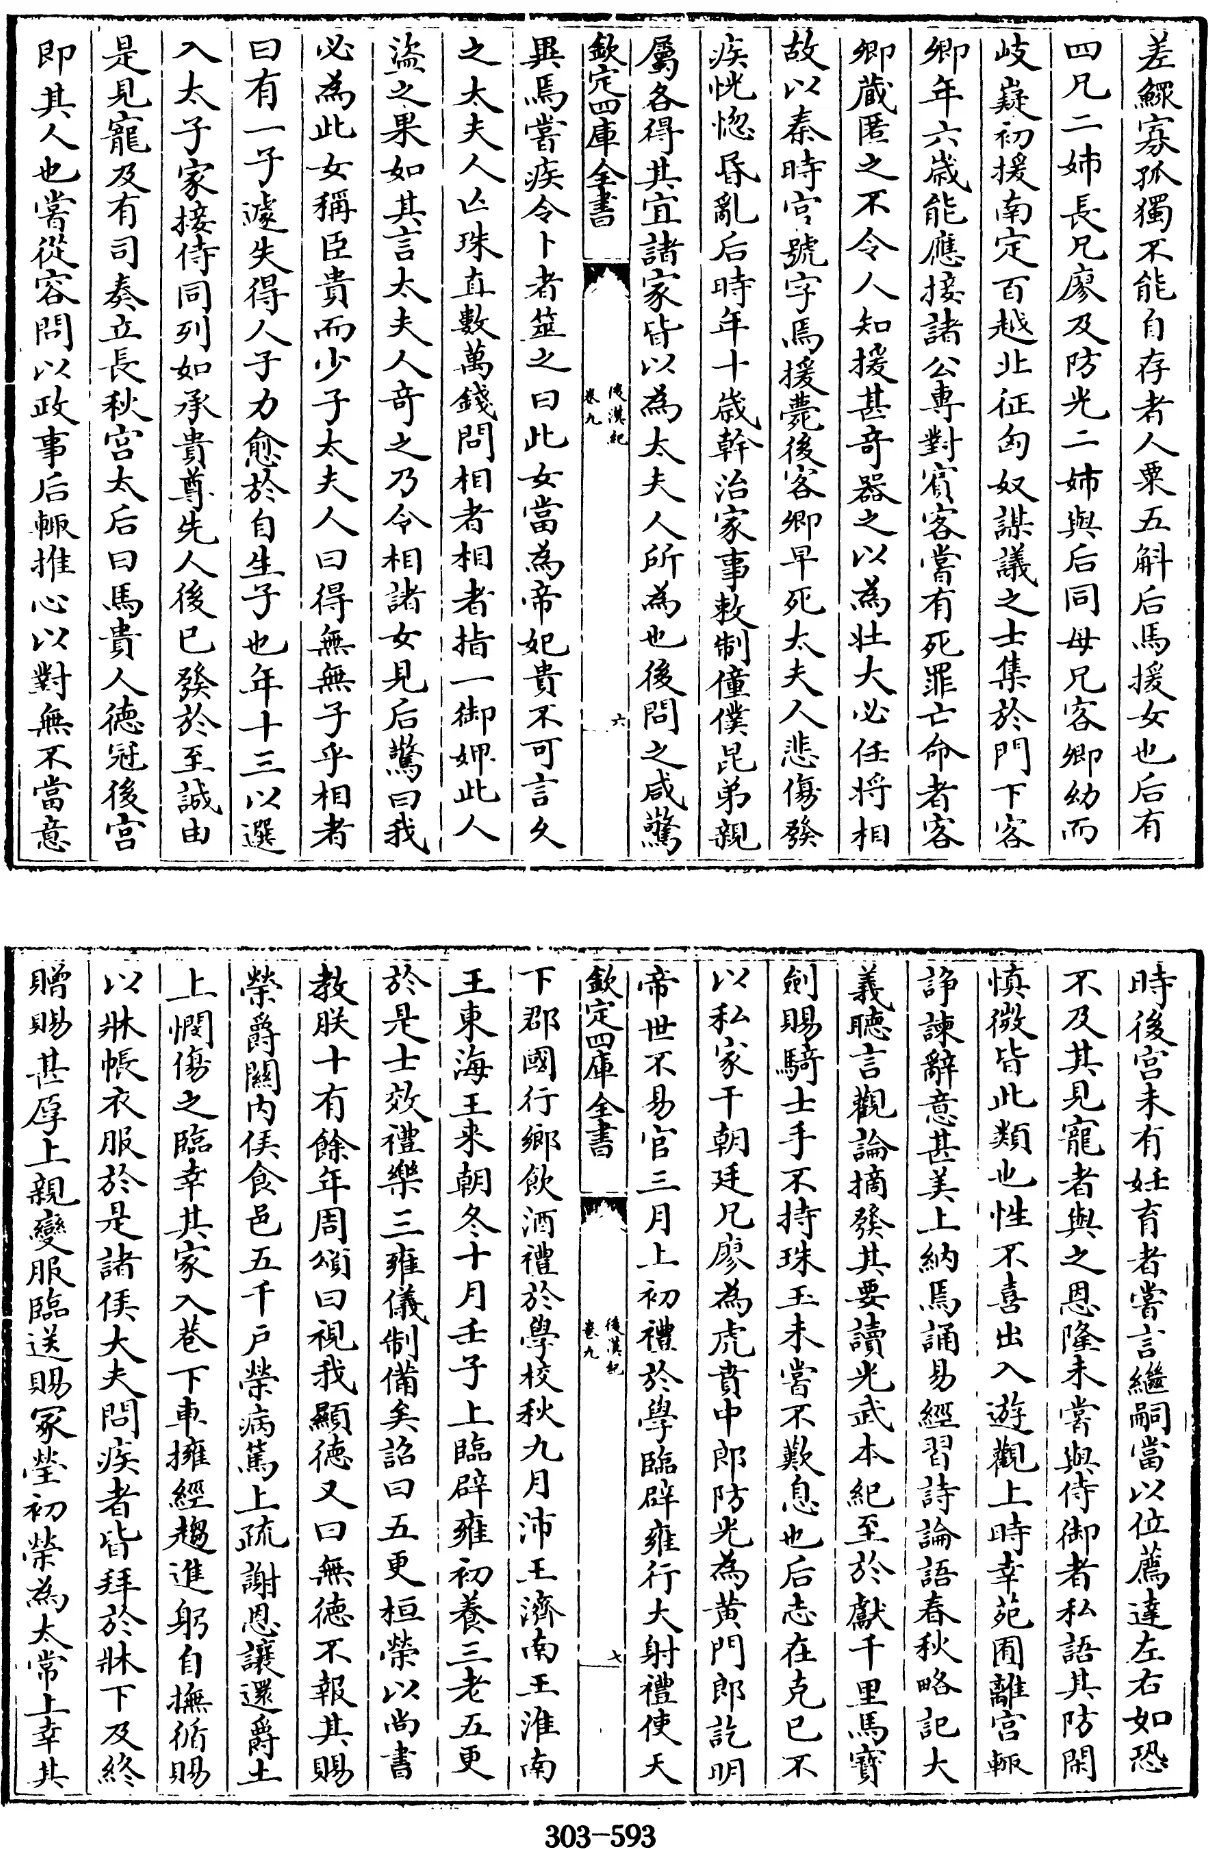 差鰥寡孤獨不能自存者人粟五斛后馬援女也后有
四兄二姉長兄廖及防光二姉與后同母兄客卿幼而
岐嶷初援南定百越北征匈奴謀議之士集於門下客
卿年六歳能應接諸公專對賓客嘗有死罪亡命者客
卿蔵匿之不令人知援甚竒器之以為壯大必任将相
故以秦時官號字焉援薨後客卿早死太夫人悲傷發
疾恍惚昏亂后時年十歳幹治家事敕制僮僕昆弟親
屬各得其宜諸家皆以為太夫人所為也後問之咸驚
欽定四庫全書
後漢紀
卷九
六
異焉嘗疾令卜者筮之曰此女當為帝妃貴不可言久
之太夫人亡珠直數萬錢問相者相者指一御婢此人
盗之果如其言太夫人奇之乃令相諸女見后驚曰我
必為此女稱臣貴而少子太夫人曰得無無子乎相者
曰有一子遽失得人子力愈於自生子也年十三以選
入太子家接侍同列如承貴尊先人後已發於至誠由
是見寵及有司奏立長秋宫太后曰馬貴人徳冠後宫
即其人也嘗從容問以政事后輙推心以對無不當意
時後宫未有妊育者嘗言繼嗣當以位薦達左右如恐
不及其見寵者與之恩隆未嘗與侍御者私語其防閑
慎微皆此類也性不喜出入遊觀上時幸苑囿離宫輙
諍諫辭意甚美上納焉誦易經習詩論語春秋略記大
義聴言觀論摘發其要讀光武本紀至於獻千里馬寳
劍賜騎士手不持珠玉未嘗不歎息也后志在克已不
以私家干朝廷兄廖為虎賁中郎防光為黄門郎訖明
帝世不易官三月上初禮於學臨辟雍行大射禮使天
欽定四庫全書
後漢紀
卷九
七
下郡國行鄉飲酒禮於學校秋九月沛王濟南王淮南
王東海王来朝冬十月壬子上臨辟雍初養三老五更
於是士效禮樂三雍儀制備矣詔曰五更桓榮以尚書
教朕十有餘年周頌曰視我顯徳又曰無徳不報其賜
榮爵關内侯食邑五千戸榮病篤上疏謝恩讓還爵土
上憫傷之臨幸其家入巷下車擁經趨進躬自撫循賜
以牀帳衣服於是諸侯大夫問疾者皆拜於牀下及終
贈賜甚厚上親變服臨送賜冢塋初榮為太常上幸其
303-593